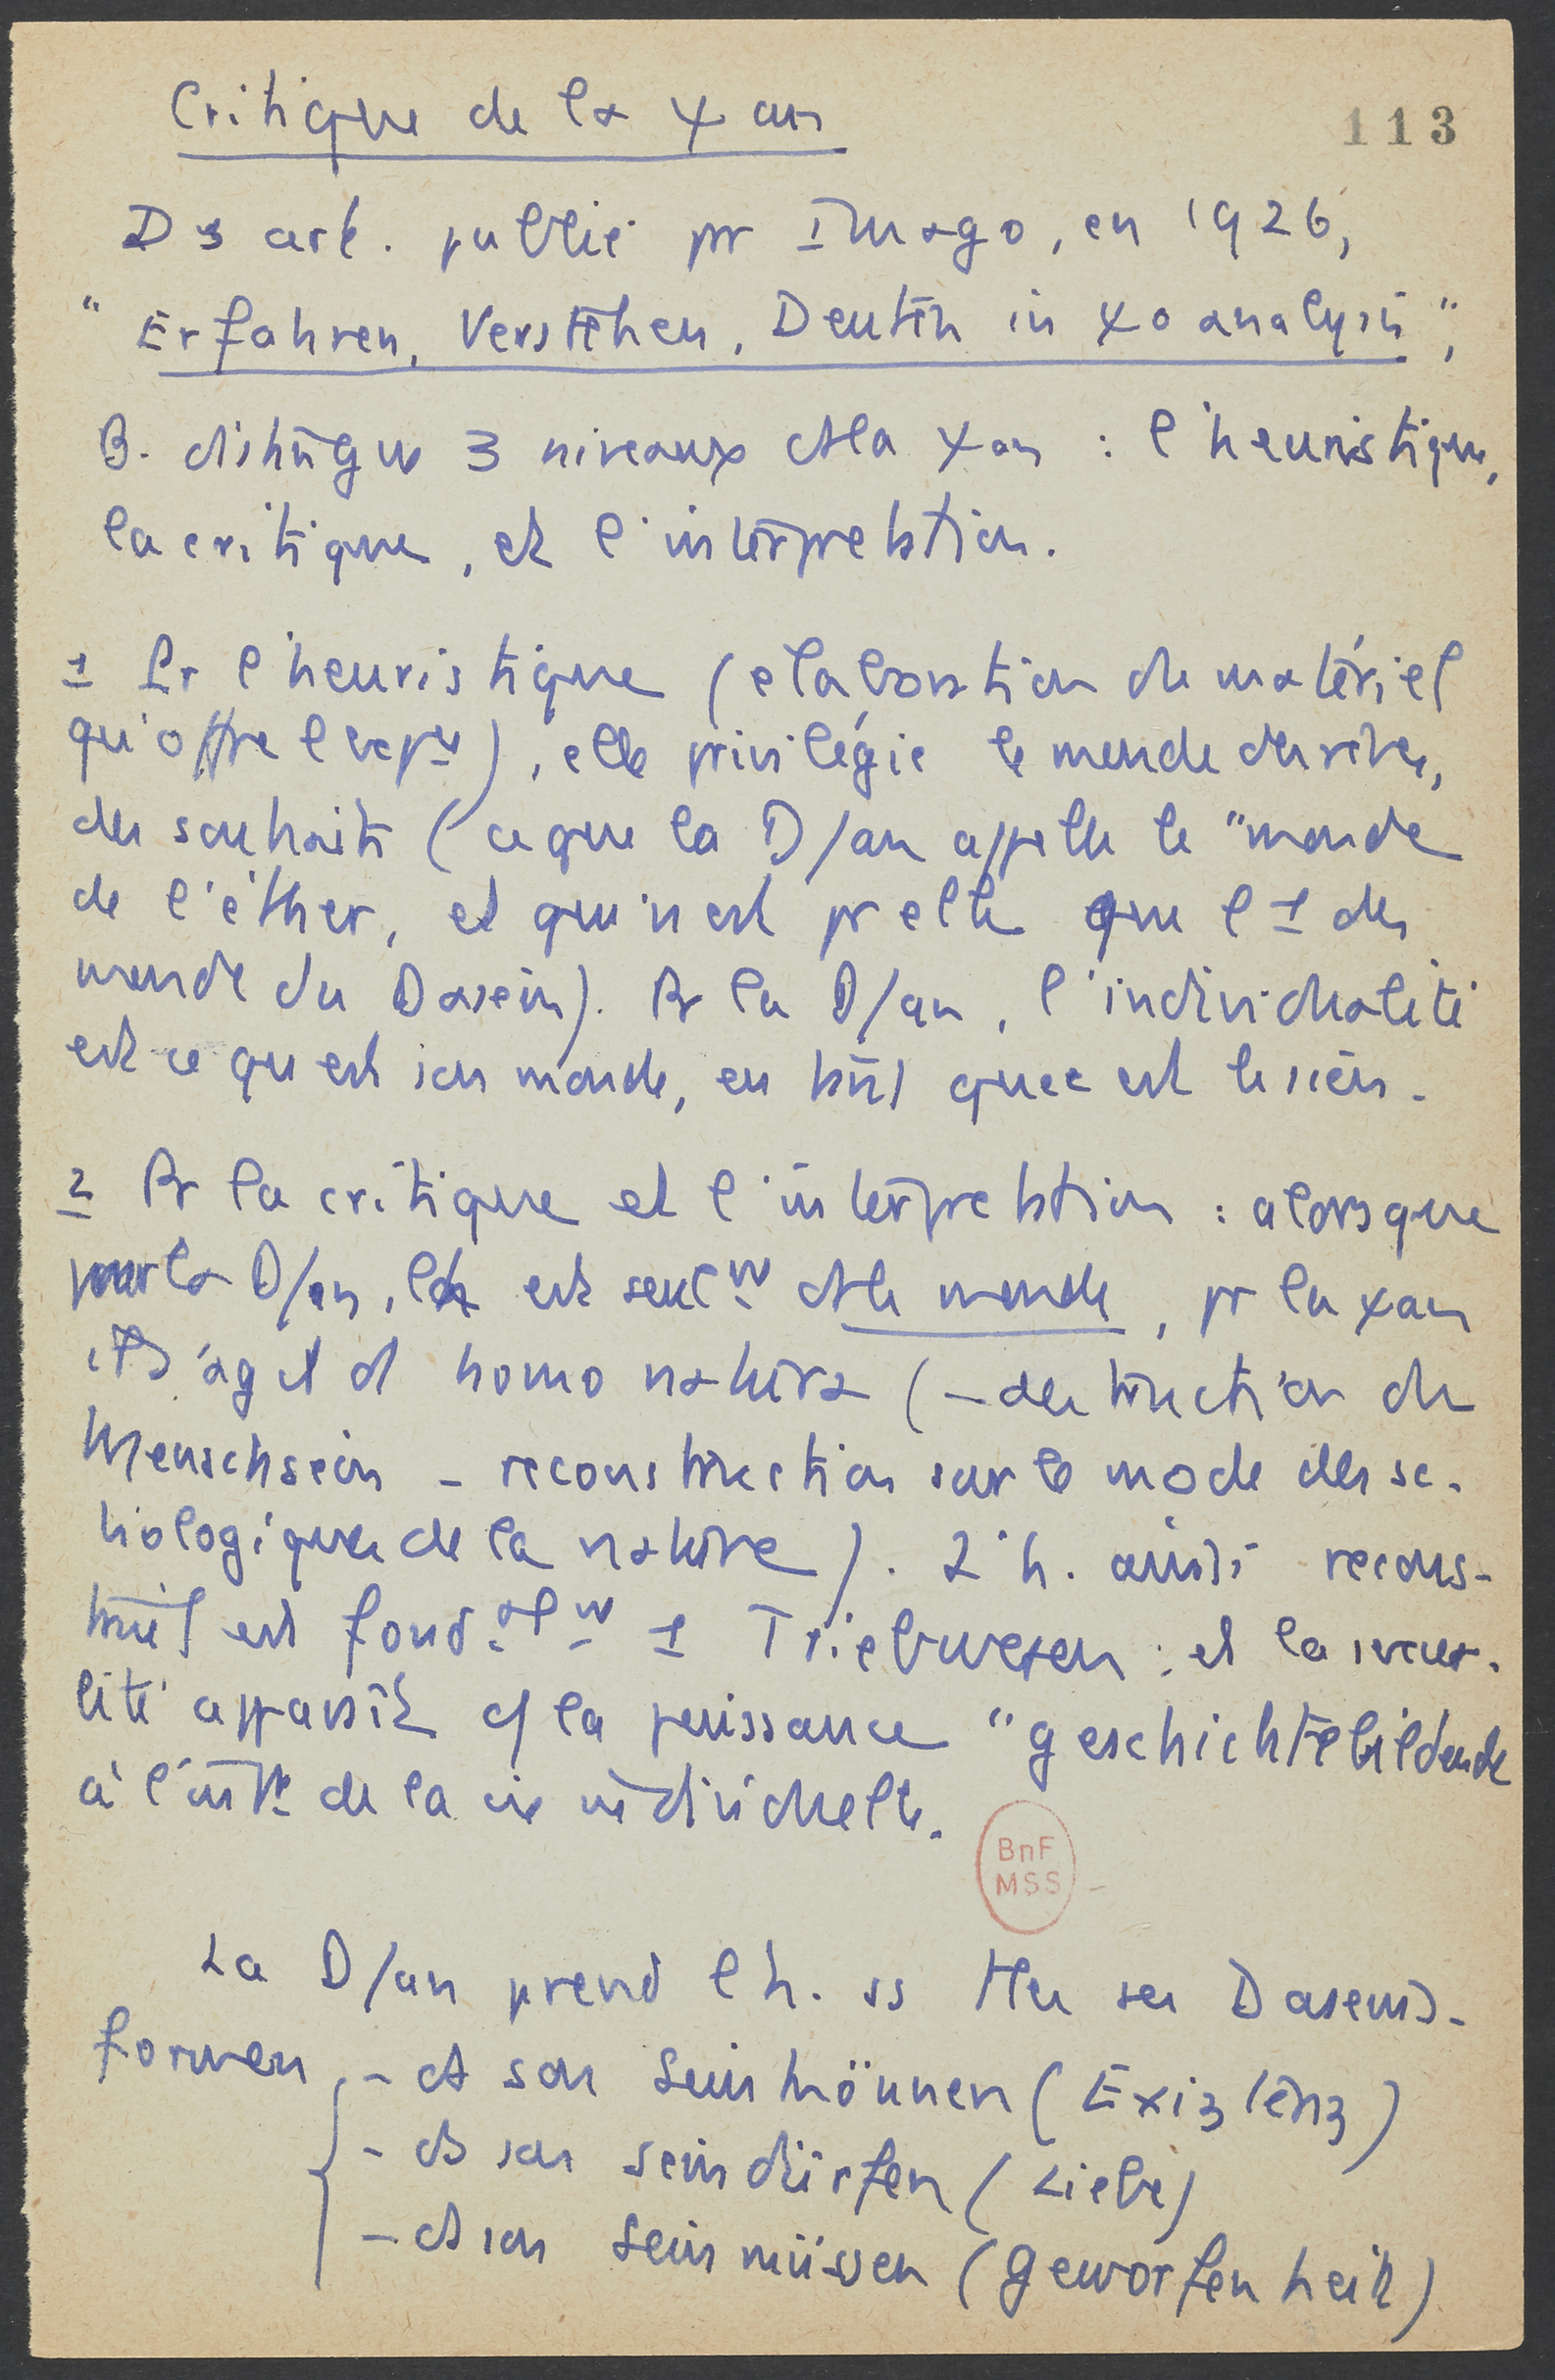 Critique de la ψan
113
Ds art. publié pr Imago, en 1926,
"Erfahren, Verstehen, Deuten in ψoanalysis",
B. distingue 3 niveaux ds la ψan : l'heuristique,
la critique, et l'interprétation.
1 Pr l'heuristique (elaboration du matériel
qu'offre l'expce), elle privilégie le monde des rêves,
des souhaits (ce que la D/an appelle le "monde
de l'éther, et qui n'est pr elle que l'1 des
monde du Dasein). Pr la D/an, l'individualité
est ce qu'est son monde, en tant que c'est le sien.
2 Pr la critique et l'interprétation : alors que
pour la D/an, l'h est seult ds le monde, pr la ψan
il s'agit d' homo natura (- destruction du
Menschsein - reconstruction sur le mode des sc.
biologiques de la nature). L'h. ainsi recons-
truit est fond.alt 1 Triebwesen : et la sexua-
lité apparaît c/ la puissance "geschichtebildende
à l'intr de la vie individuelle.
BnF
MSS
La D/an prend l'h. ss ttes ses Daseins-
formen - ds son Seinkönnen (Existenz)
- ds son Seindürfen (Liebe)
- ds son Seinmüssen (Geworfenheit)